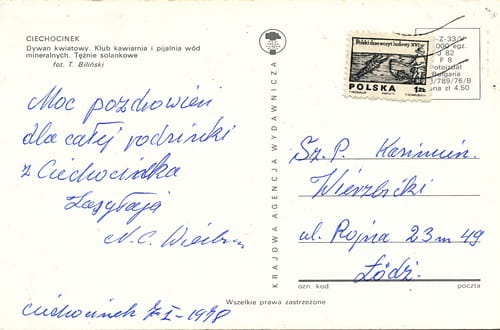 CIECHOCINEK
Dywan kwiatowy. Klub kawiarnia i pijalnia wód
mineralnych. Tężnie solankowe
fot. T. Biliński
Moc pozdrowień
dla całej rodzinki
z Ciechocinka
Zasyłają
N. C.
Ciechocinek
KRAJOWA AGENCJA WYDAWNICZA
Polski drzeworyt ludowy XVI w.
POLSKA
1zł
Z-33/V
000 egz.
J 82
F 8
Fotoizdat
Bulgaria
/789/76/B
na zł 4.50
Sz. P. Kazimierz
Wierzbicki
ul. Rojna 23 m 49
Łódź.
ozn. kod
poczta
Wszelkie prawa zastrzeżone